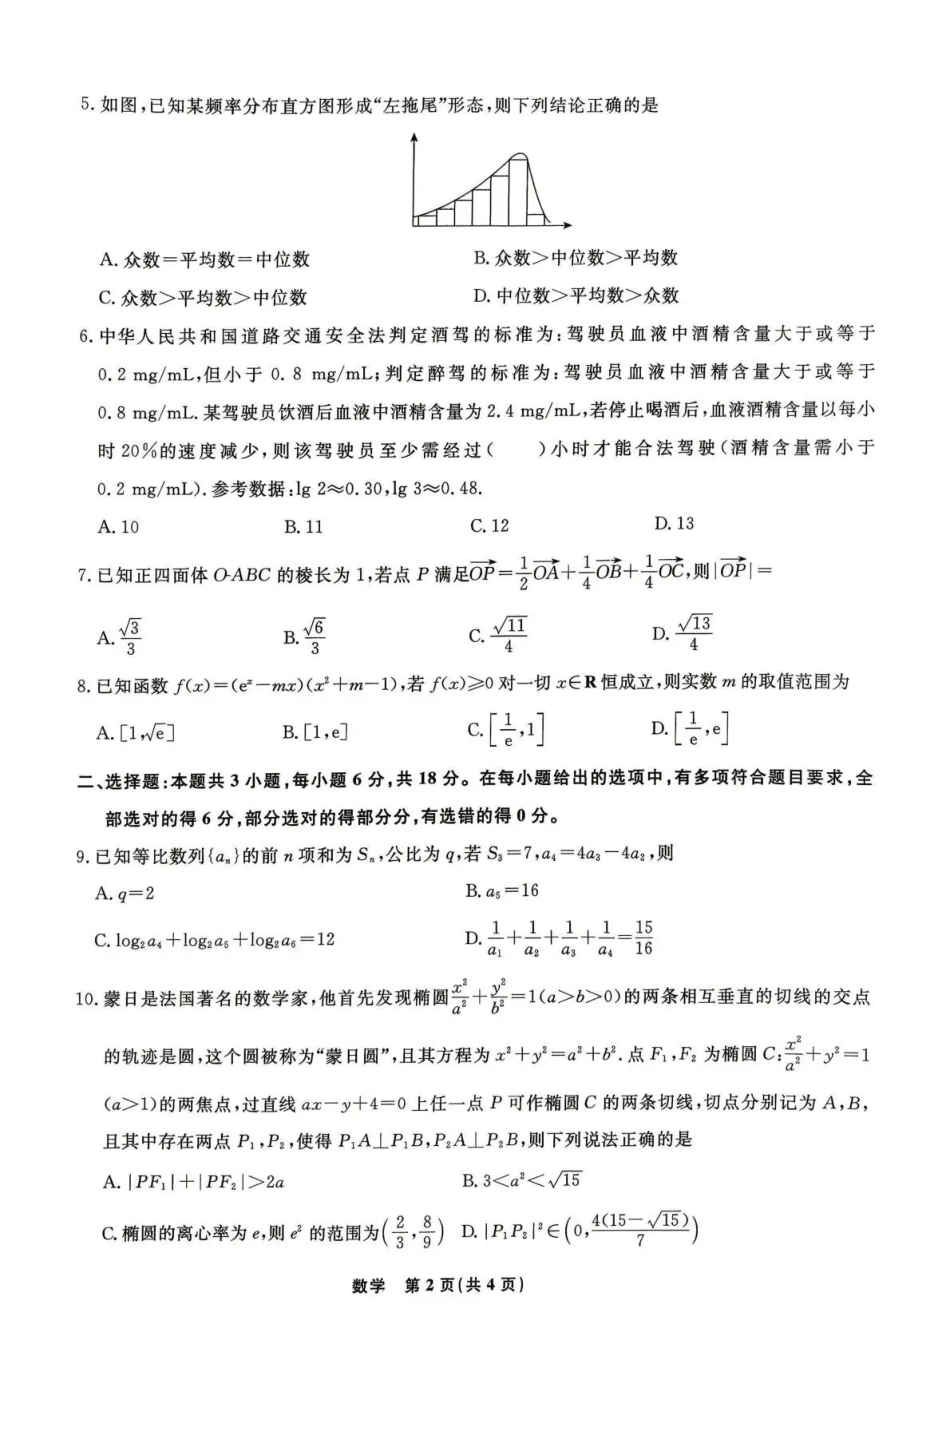 5. 如图,已知某频率分布直方图形成“左拖尾”形态,则下列结论正确的是
A. 众数=平均数=中位数 B. 众数>中位数>平均数
C. 众数>平均数>中位数 D. 中位数>平均数>众数
6. 中华人民共和国道路交通安全法判定酒驾的标准为:驾驶员血液中酒精含量大于或等于
0.2 mg/mL,但小于 0.8 mg/mL;判定醉驾的标准为:驾驶员血液中酒精含量大于或等于
0.8 mg/mL. 某驾驶员饮酒后血液中酒精含量为 2.4 mg/mL,若停止喝酒后,血液酒精含量以每小
时 20%的速度减少,则该驾驶员至少需经过( )小时才能合法驾驶(酒精含量需小于
0.2 mg/mL). 参考数据:lg 2≈0.30,lg 3≈0.48.
A. 10 B. 11 C. 12 D. 13
7. 已知正四面体 O-ABC 的棱长为 1,若点 P 满足$\overrightarrow{OP}=\frac{1}{2}\overrightarrow{OA}+\frac{1}{4}\overrightarrow{OB}+\frac{1}{4}\overrightarrow{OC}$,则|$\overrightarrow{OP}$|=
A. $\frac{\sqrt{3}}{3}$ B. $\frac{\sqrt{6}}{3}$ C. $\frac{\sqrt{11}}{4}$ D. $\frac{\sqrt{13}}{4}$
8. 已知函数 f(x)=(eˣ-mx)(x²+m-1),若 f(x)≥0 对一切 x∈R 恒成立,则实数 m 的取值范围为
A. [1,√e] B. [1,e] C. $\left[\frac{1}{e},1\right]$ D. $\left[\frac{1}{e},e\right]$
二、选择题:本题共 3 小题,每小题 6 分,共 18 分。在每小题给出的选项中,有多项符合题目要求,全
部选对的得 6 分,部分选对的得部分分,有选错的得 0 分。
9. 已知等比数列{aₙ}的前 n 项和为 Sₙ,公比为 q,若 S₃=7,a₄=4a₃-4a₂,则
A. q=2 B. a₅=16
C. log₂a₄+log₂a₅+log₂a₆=12 D. $\frac{1}{a_1}+\frac{1}{a_2}+\frac{1}{a_3}+\frac{1}{a_4}=\frac{15}{16}$
10. 蒙日是法国著名的数学家,他首先发现椭圆$\frac{x^2}{a^2}+\frac{y^2}{b^2}=1$(a>b>0)的两条相互垂直的切线的交点
的轨迹是圆,这个圆被称为“蒙日圆”,且其方程为 x²+y²=a²+b². 点 F₁,F₂ 为椭圆 C:$\frac{x^2}{a^2}+y^2=1$
(a>1)的两焦点,过直线 ax-y+4=0 上任一点 P 可作椭圆 C 的两条切线,切点分别记为 A,B,
且其中存在两点 P₁,P₂,使得 P₁A⊥P₁B,P₂A⊥P₂B,则下列说法正确的是
A. |PF₁|+|PF₂|>2a B. 3<a²<√15
C. 椭圆的离心率为 e,则 e² 的范围为$\left(\frac{2}{3},\frac{8}{9}\right)$ D. |P₁P₂|²∈$\left(0,\frac{4(15-\sqrt{15})}{7}\right)$
数学 第 2 页(共 4 页)